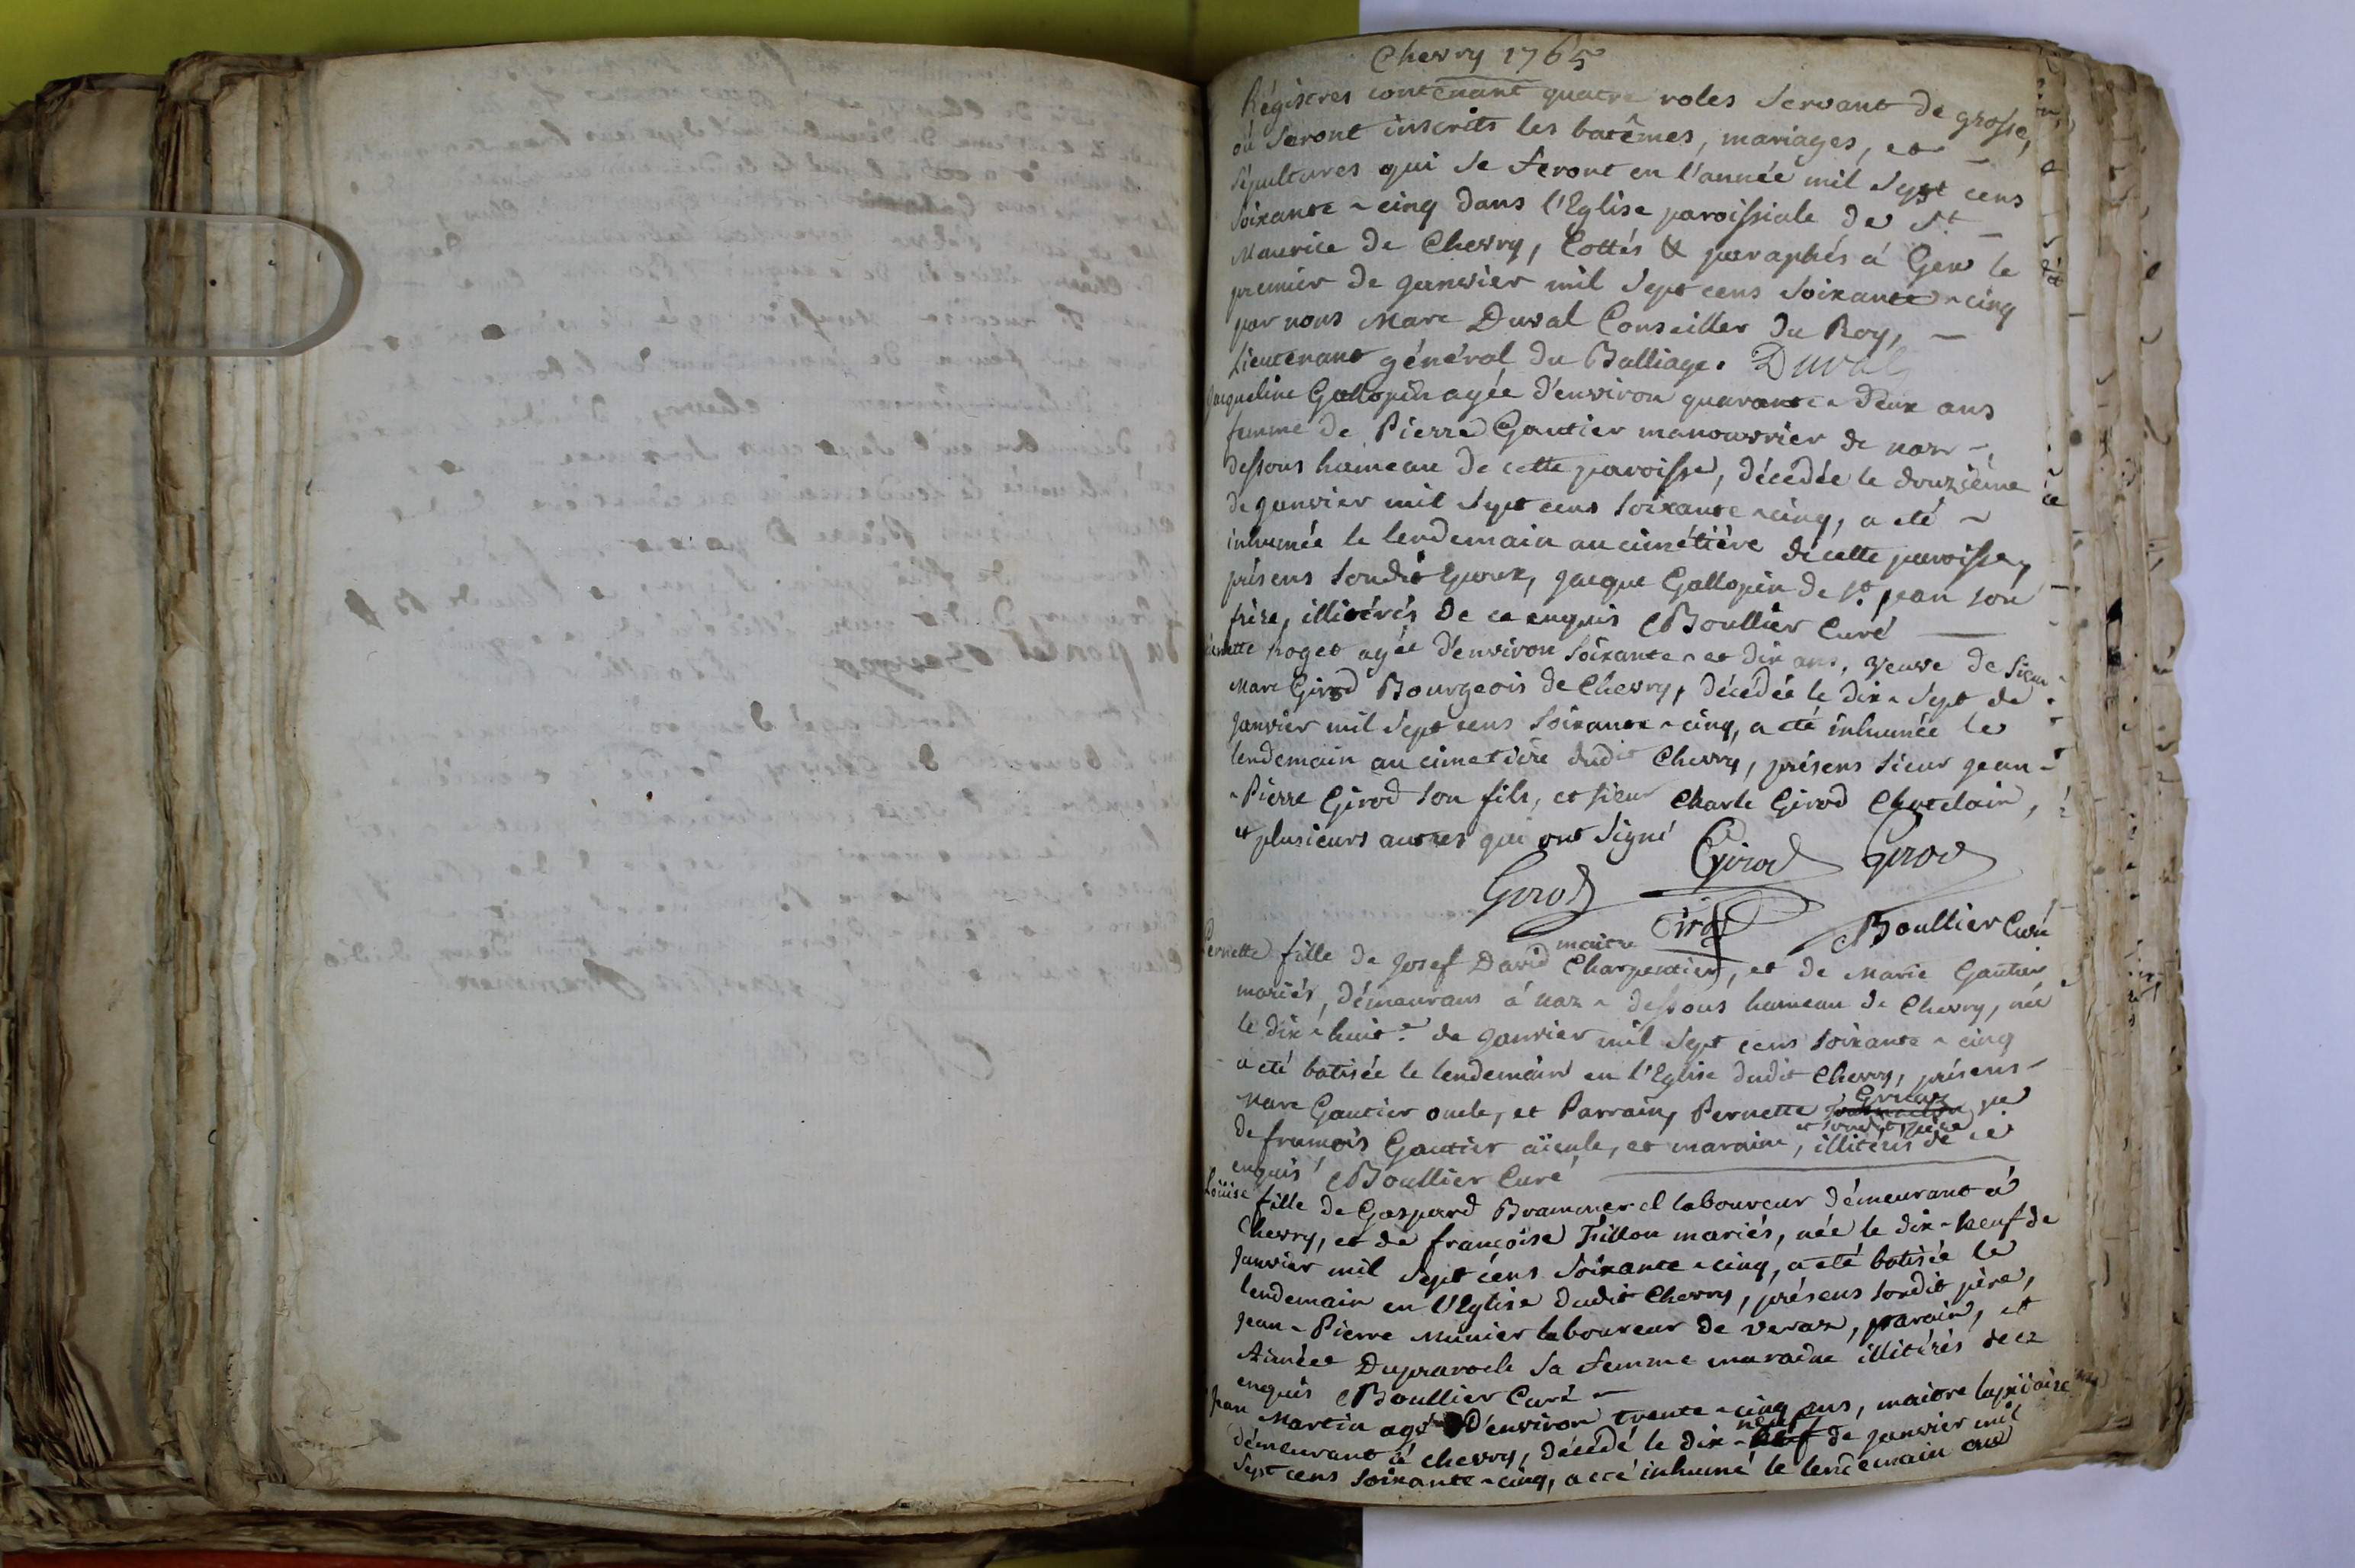 Chevry 1765
Régistres contenant quatre roles servant de grosse,
où seront inscrits les batêmes, mariages, et
sépultures qui se feront en l'année mil sept cens
soixante-cinq dans l'Eglise paroissiale de St
Maurice de Chevry, Cottés & paraphés à Gex le
premier de janvier mil sept cens soixante-cinq
par nous Marc Duval Conseiller du Roy,
Lieutenant général du Balliage. Duval
Jacqueline Gallopin agée d'environ quarante-deux ans
femme de Pierre Gautier manouvrier de naz-
dessous hameau de cette paroisse, décedée le douzième
de janvier mil sept cens soixante-cinq, a eté
inhumée le lendemain au cimétière de cette paroisse,
présens sondit Epoux, jacque Gallopin de St jean son
frère, illitérés de ce enquis Boullier Curé
roget agée d'environ soixante-et dix ans, veuve de Sieur
Marc Girod Bourgeois de Chevry, décédée le dix-sept de
janvier mil sept cens soixante-cinq, a eté inhumée le
lendemain au cimetière dudit Chevry, présens sieur jean-
-Pierre Girod son fils, et sieur Charle Girod Chatelain,
et plusieurs autres qui ont signé
Girod Girod
Girod Girod Boullier Curé
Pernette fille de josef David maitre Charpentier, et de Marie Gautier
mariés, démeurans à naz-dessous hameau de Chevry, née
le dix-huite de janvier mil sept cens soixante-cinq
a eté batisée le lendemain en l'Eglise dudit Chevry, présens-
Marc Gautier oncle, et Parrain, Pernette
de francois Gautier aïeule, et maraine, et sondit père illitérés de ce
enquis Boullier Curé
Loüise fille de Gaspard Brammerel laboureur démeurant à
Chevry, et de françoise Tillon mariés, née le dix-neuf de
janvier mil sept cens soixante-cinq, a eté batisée le
lendemain en l'Eglise dudit Chevry, présens sondit père,
jean-Pierre Munier laboureur de veraz, parain, et
Aimée Dupraroele sa femme maraine illitérés de ce
enquis Boullier Curé
jean Martin agé d'environ trente-cinq ans, maitre lapidaire
démeurant à chevry, décédé le dix-neuf de janvier mil
sept cens soixante-cinq, a eté inhumé le lendemain au